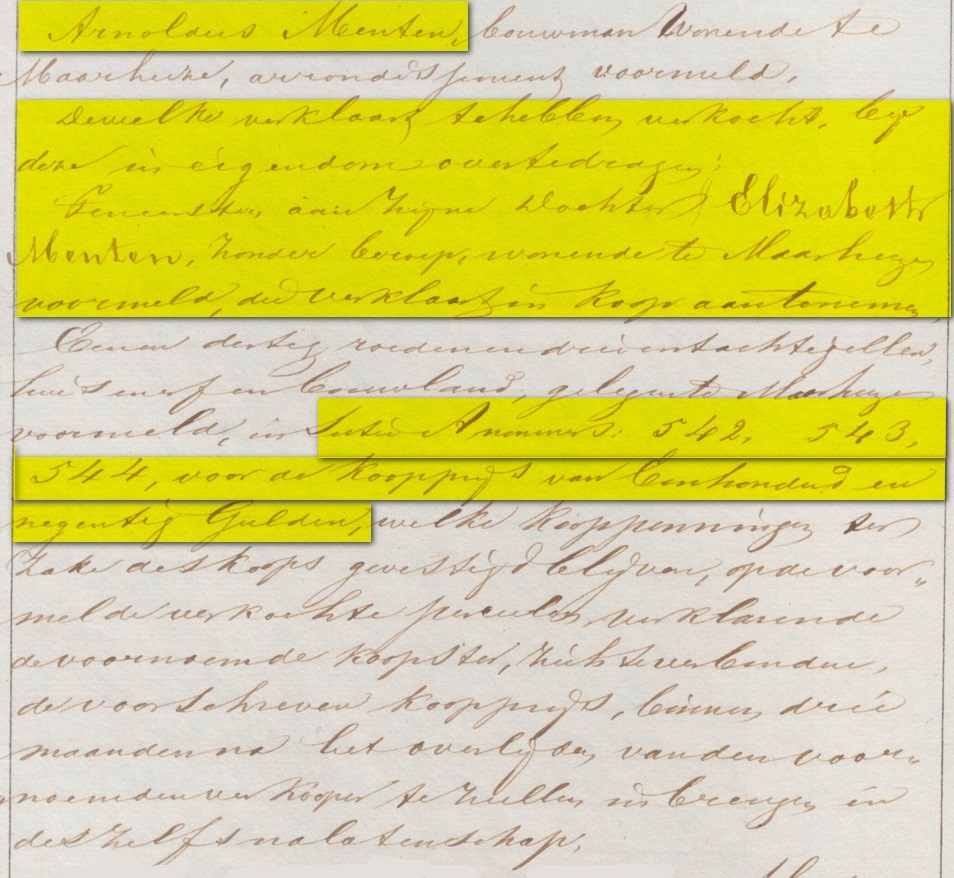 Arnoldus Menten, bouwman Wonende te
Maarheeze, arrondissement voormeld,
Dewelke verklaart te hebben verkocht, by
deze in eigendom overtedragen;
Teneersten, aan Zyne Dochter Elizabeth
Menten, Zonder beroep, wonende te Maarheeze
voormeld, die Verklaart in koop aantenemen,
Eenen dertig roeden en drieentachtig ellen,
huis en erf en bouwland, gelegen te Maarheeze
voormeld, in Sectie A nommers: 542, 543,
544, voor de koopprys van Eenhonderd en
negentig Gulden, welke kooppenningen ter
Zake des koops gevestigd blyven, op de voor„
melde verkochte perceelen verklarende
de voornoemde koopster, zich te verbinden,
de voorschreven koopprys, binnen drie
maanden na het overlyden van den voor„
noemden verkooper te zullen inbrengen in
deszelfs nalatenschap;